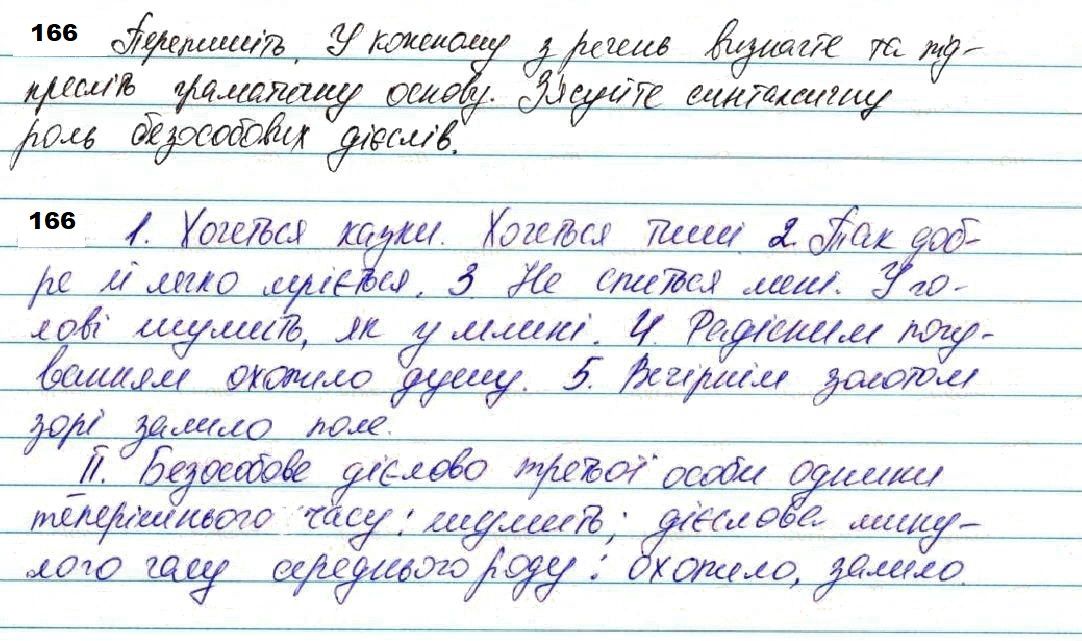 166 Перепишіть. У кожному з речень визначте та під-
кресліть граматичну основу. З'ясуйте синтаксичну
роль безособових дієслів.
166 1. Хочеться казки. Хочеться тиші 2. Так доб-
ре й легко мріється. 3. Не спиться мені. У го-
лові шумить, як у млині. 4. Радісним почу-
ванням охопило душу. 5. Вечірнім золотом
зорі залило поле.
II. Безособове дієслово третьої особи однини
теперішнього часу: шумить; дієслова мину-
лого часу середнього роду: охопило, залило.